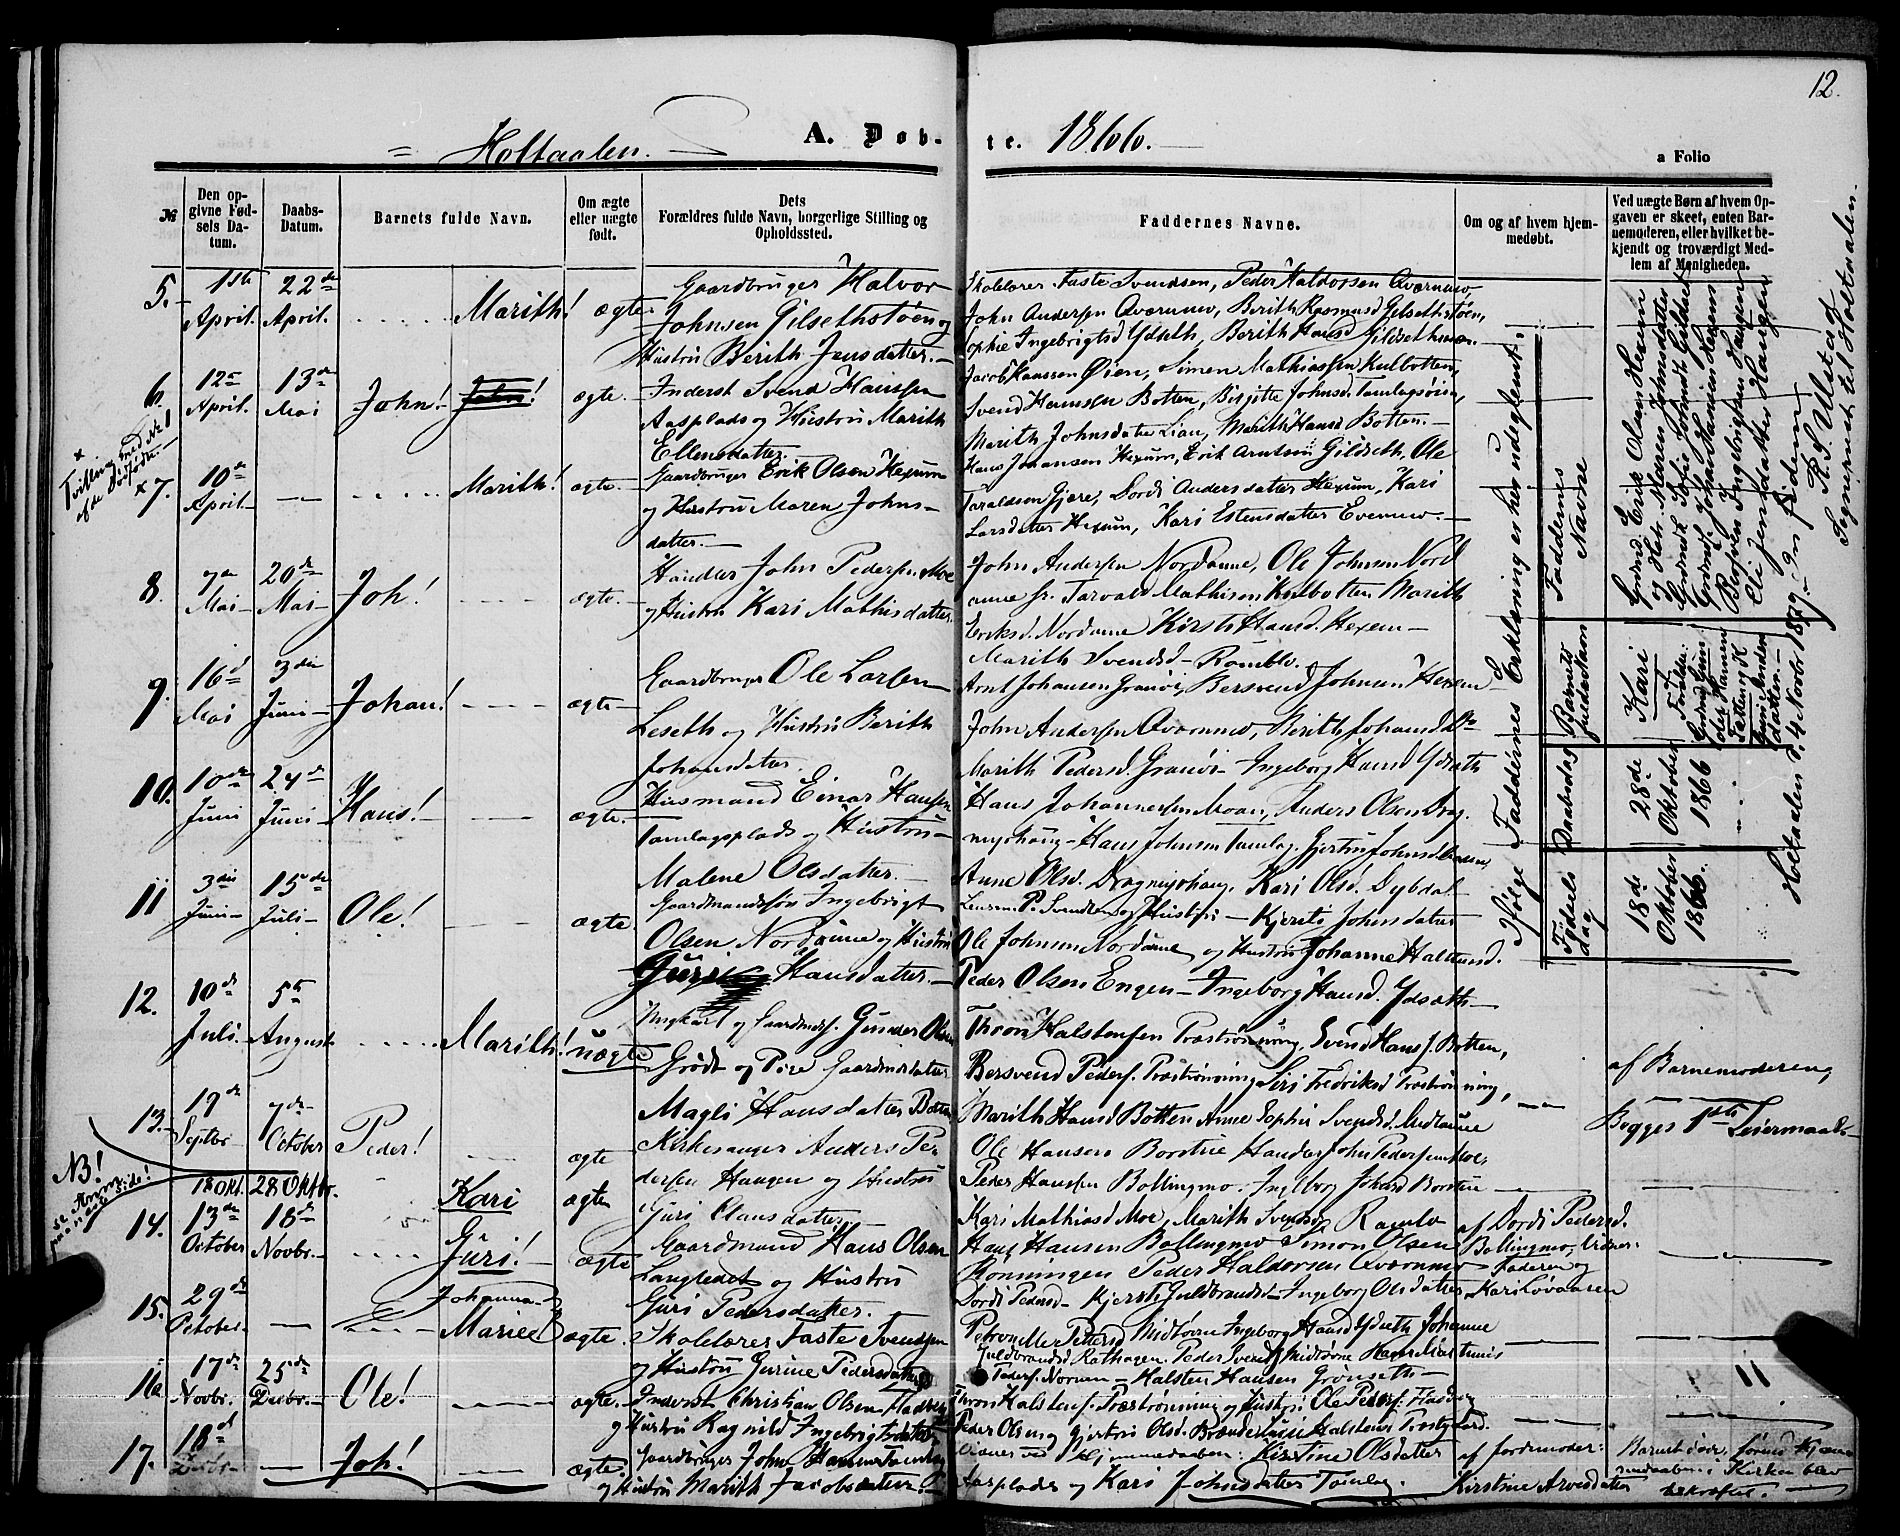 12.
= Holtaalen.
A. Døb-
te. 1866.
a Folio
№
Den op-
givne Fød-
sels Da-
tum.
Daabs-
Datum.
Barnets fulde Navn.
Om ægte
eller uægte
født.
Dets
Forældres fulde Navn, borgerlige Stilling og
Opholdssted.
Faddernes Navne.
Om og af hvem hjem-
medøbt.
Ved uægte Børn af hvem Op-
gaven er skeet, enten Bar-
nemoderen, eller hvilket be-
kjendt og troværdigt Med-
lem af Menigheden.
5. 1ste April. 22de April. Marith! ægte.
Gaardbruger Halvor
Johnsen Gilsethstøen og
Hustru Berith Jensdatter.
Skolelærer Faste Svendsen, Peder Haldorsen Aværnmo
John Andersen Aværnmo, Berith Rasmusd Gilsethstøen,
Sophie Ingebrigtsd Ydseth, Berith Hansd Gildsethmoen.
6. 12te April. 13de Mai John! ægte.
Inderst Svend Hansen
Aasplads og Hustru Marith
Ellensdatter.
Jacob Hanssen Øien, Simen Mathiassen Kulbotten,
Svend Hansen Botten, Birgitte Johnsd. Tamlagsøien,
Marith Johnsdatter Lian, Marith Hansd Botten.
x Tvilling med Nr 1
af de Dødfødte.
x 7. 10de April. Marith! ægte
Gaardbruger Erik Olsen Hexum
og Hustru Maren Johns-
datter.
Hans Johansen Hexum, Erik Arntsen Gildseth, Ole
Taraldsen Gjøre, Dordi Andersdatter Hexum, Kari
Larsdatter Hexum, Kari Estensdatter Evenmo.
8. 7de Mai 20de Mai Joh! ægte.
Handler John Pedersen Moe
og Hustru Kari Mathisdatter
John Andersen Nordaune, Ole Johnsen Nord
aune Sr. Tarvald Mathisen Kulbotten Marith
Eriksd. Nordaune Kirsti Hansd. Hexem
Marith Svendsd Ramlo.
9. 16de Mai 3die Juni Johan! ægte
Gaardbruger Ole Larsen
Leseth og Hustru Berith
Johansdatter.
Arnt Johansen Granøi, Bersvend Johnsen Hexem
John Andersen Aværnmo, Berith Johansd
Marith Pedersd. Granøi Ingeborg Hansd Ydseth
10. 10de Juni 24de Juni Hans! ægte.
Husmand Einar Hansen
Tamlagsplads og Hustru
Malene Olsdatter.
Hans Johannesen Moan, Anders Olsen Drag
myrhaug Hans Johnsen Tamlag. Gjertru Johnsd
Anne Olsd. Dragmyrhaug, Kari Olsd. Dybdal
11 3die Juni 15de Juli Ole! ægte.
Gaardmandssøn Ingebrigt
Olsen Nordaune og Hustru
Guri Hansdatter.
Lensm. P. Svendsen og Hustru Kjersti Johnsdatter
Ole Johnsen Nordaune og Hustru Johanne Halstensd.
Peder Olsen Engen Ingeborg Hansd. Ydseth
12. 10de Juli 5te August Marith! uægte
Ungkarl og Gaardmdsf. Gunder Olsen
Grødt og Pige Gaardmdsdatter
Magli Hansdatter Botten
Thron Halstensen Præstrønning, Svend Hansf. Botten,
Bersvend Pedersf. Præstrønning, Siri Fredriksd Præstrønning,
Marith Hansd Botten Anne Sophie Svendsd. Midtaune
af Barnemoderen,
Begges 1ste Leiermaal.
13. 19de Septbr 7de October Peder! ægte
Kirkesanger Anders Pe
dersen Haugen og Hustru
Guri Clausdatter
Ole Hansen Borstue Handler John Pedersen Moe,
Peder Hansen Bollingmo. Ingeborg Johand Borstue
Kari Mathiasd Moe, Marith Svendsd Ramlo
NB!
se Anm.
paa næste Side!
18 Okt. 28 Oktbr. Kari ægte
14. 13de October 18de Novbr. Guri! ægte
Gaardmand Hans Olsen
Langledet og Hustru
Guri Pedersdatter.
Hans Hansen Bollingmo Simon Olsen
Rønningen Peder Haldorsen Aværnmo
Dordi Pedersd. Kjersti Guldbrandsd Ingeborg Olsdatter
af Dordi Pedersd.
Bollingmo, Vidner:
Faderen og
Kari Løvaasen
15. 29de Oktober. Johanna Marie ægte.
Skolelærer Faste Svendsen
og Hustru Gurine Pedersdatter
Petronelle Pettersd Midtørne Ingeborg Hansd Ydseth Johanne
Guldbrandsd Rathagen. Peder Svendsf Midtørne
Pedersf. Normen Halsten Hansen Gronseth
16 17de Novbr. 25de Decbr. Ole! ægte.
Inderst Christian Olsen Fladberg
og Hustru Ragnild Ingebrigtsdatter
Thron Halstensf. Præstrønning og Hustru Ole Pedersf. Fladberg
Peder Olsen og Gjertru Olsd.
11
17. 18de Decbr Joh! ægte.
Gaardbruger John Hansen Tamlag
og Hustru Marith Jacobsdatter
Vidner ved Hjemmedaaben: Kirstine Olsdatter
Aasplads og Kari Johnsdatter Tamlag.
af Fordemoder:
Kirstine Arvesdatter
Barnet døde, førend Hjem
medaaben i Kirken blev
bekræftet.
Ifølge Faddernes Erklæring er her udeglemt:
Fødsels dag
Daabsdag
Barnets fulde Navn
Faddernes Navne
18de Oktober 1866.
28de Oktober 1866
Kari
Grdmd. Erik Olsen Hexem
og Hstr. Maren Johnsdatter
Grdmd. Johan Hansen Hexem
Bersven Ingebrigtsen Haugen
Elie Jensdatter Haugen
Holtaalen d. 4 Novbr 1879. In fidem
R. S. Ulstad
Sognepræst til Holtaalen.